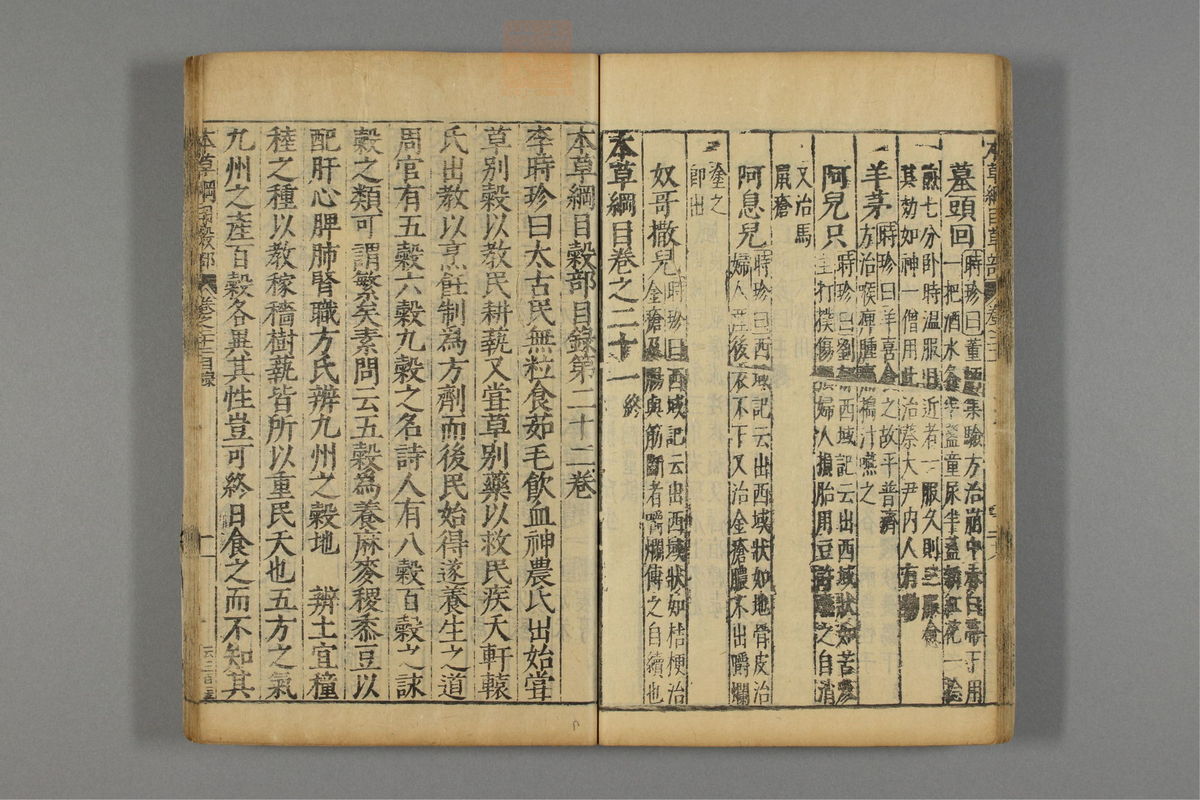 墓頭回時珍曰董炳集驗方治崩中赤白帶下用
一把酒水各半盞童尿半盞新紅花一
煎七分臥時温服日近者一服久則三服愈
其効如神一僧用此治蔡大尹内人有
羊茅時珍曰羊喜食之故平普濟
方治喉痺腫痛擣汁嚥之
阿兒只時珍曰劉郁西域記云出西域狀如苦參
主打撲傷損婦人損胎用豆之自消
又治馬
鼠瘡
阿息兒時珍曰西域記云出西域狀如地骨皮治
婦人産後衣不下又治金瘡膿不出嚼爛
塗之
即出
奴哥撒兒時珍曰西域記云出西域狀如桔梗治
金瘡及腸與筋斷者嚼爛傅之自續也
本草綱目卷之二十一終
本草綱目穀部目録第二十二卷
李時珍曰太古民無粒食茹毛飲血神農氏出始嘗
草别穀以教民耕蓺又嘗草别藥以救民疾夭軒轅
氏出教以烹飪制為方劑而後民始得遂養生之道
周官有五穀六穀九穀之名詩人有八穀百穀之詠
穀之類可謂繁矣素問云五穀為養麻麥稷黍豆以
配肝心脾肺腎職方氏辨九州之穀地 辨土宜穜
稑之種以教稼穡樹蓺皆所以重民天也五方之氣
九州之産百穀各異其性豈可終日食之而不知其
本草綱目穀部